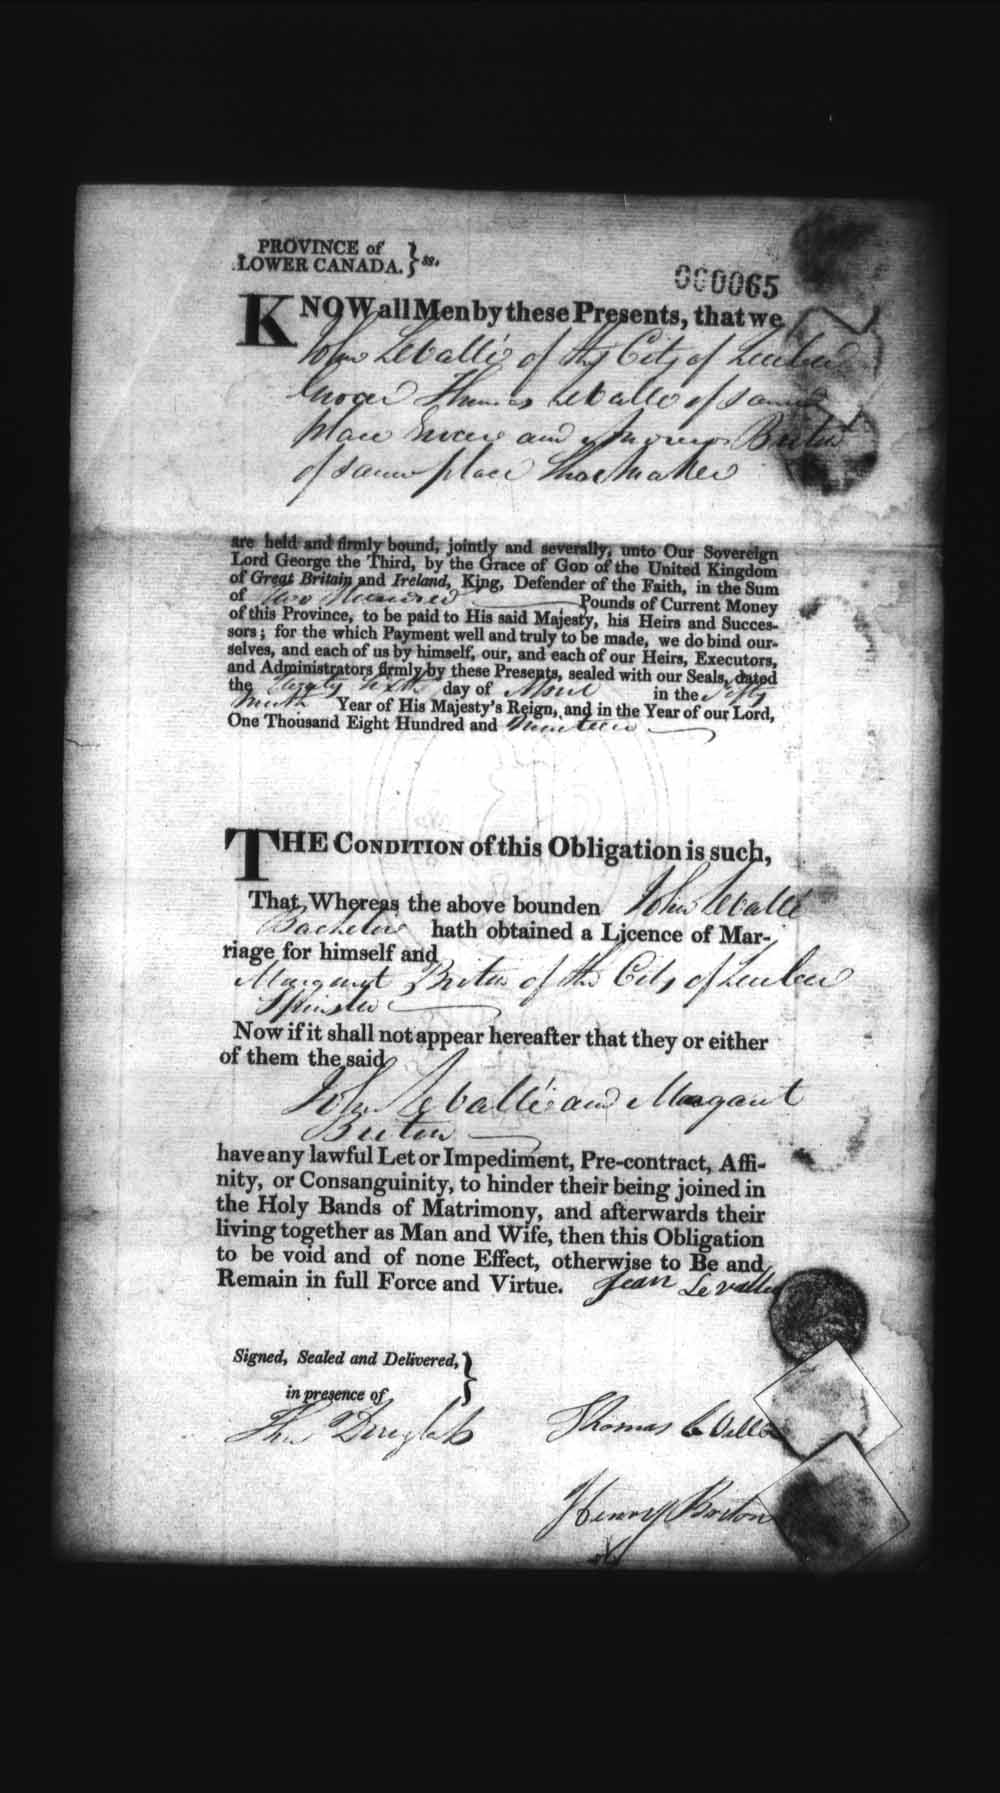 PROVINCE of
LOWER CANADA. } ss.
000065
KNOW all Men by these Presents, that we
John Levallé of the City of Quebec
Grocer Thomas Levallé of same
place Grocer and Britton
of same place Shoemaker
are held and firmly bound, jointly and severally, unto Our Sovereign
Lord George the Third, by the Grace of GOD of the United Kingdom
of Great Britain and Ireland, King, Defender of the Faith, in the Sum
of Two Hundred Pounds of Current Money
of this Province, to be paid to His said Majesty, his Heirs and Succes-
sors; for the which Payment well and truly to be made, we do bind our-
selves, and each of us by himself, our, and each of our Heirs, Executors,
and Administrators firmly by these Presents, sealed with our Seals, dated
the Twenty day of April in the Fifty
Ninth Year of His Majesty's Reign, and in the Year of our Lord,
One Thousand Eight Hundred and Nineteen
THE CONDITION of this Obligation is such,
That, Whereas the above bounden John Levallé
Bachelor hath obtained a Licence of Mar-
riage for himself and
Margaret Britton of the City of Quebec
Spinster
Now if it shall not appear hereafter that they or either
of them the said
John Levallé and Margaret
Britton
have any lawful Let or Impediment, Pre-contract, Affi-
nity, or Consanguinity, to hinder their being joined in
the Holy Bands of Matrimony, and afterwards their
living together as Man and Wife, then this Obligation
to be void and of none Effect, otherwise to Be and
Remain in full Force and Virtue.
Jean Levallee
Signed, Sealed and Delivered,
in presence of }
Thos Douglass
Thomas LeVallée
Henry Briton